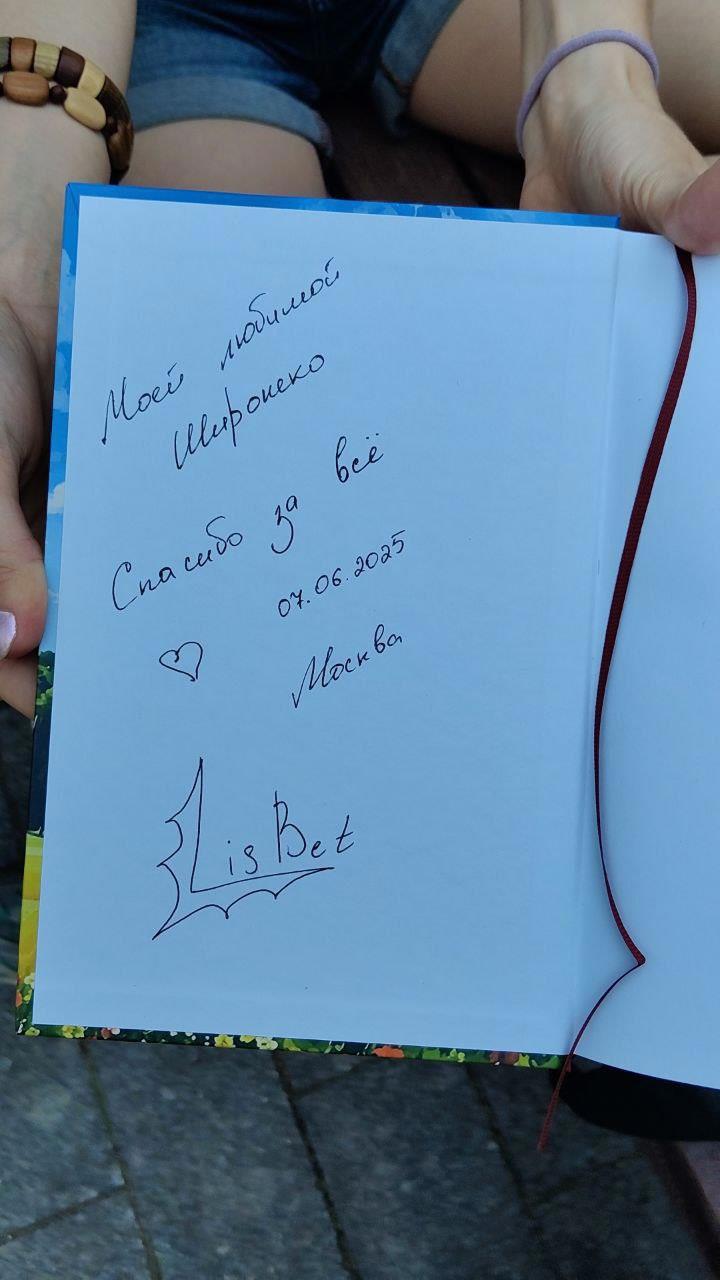 Моей любимой
Широнеко
Спасибо за всё
07.06.2025
Москва
LisBet